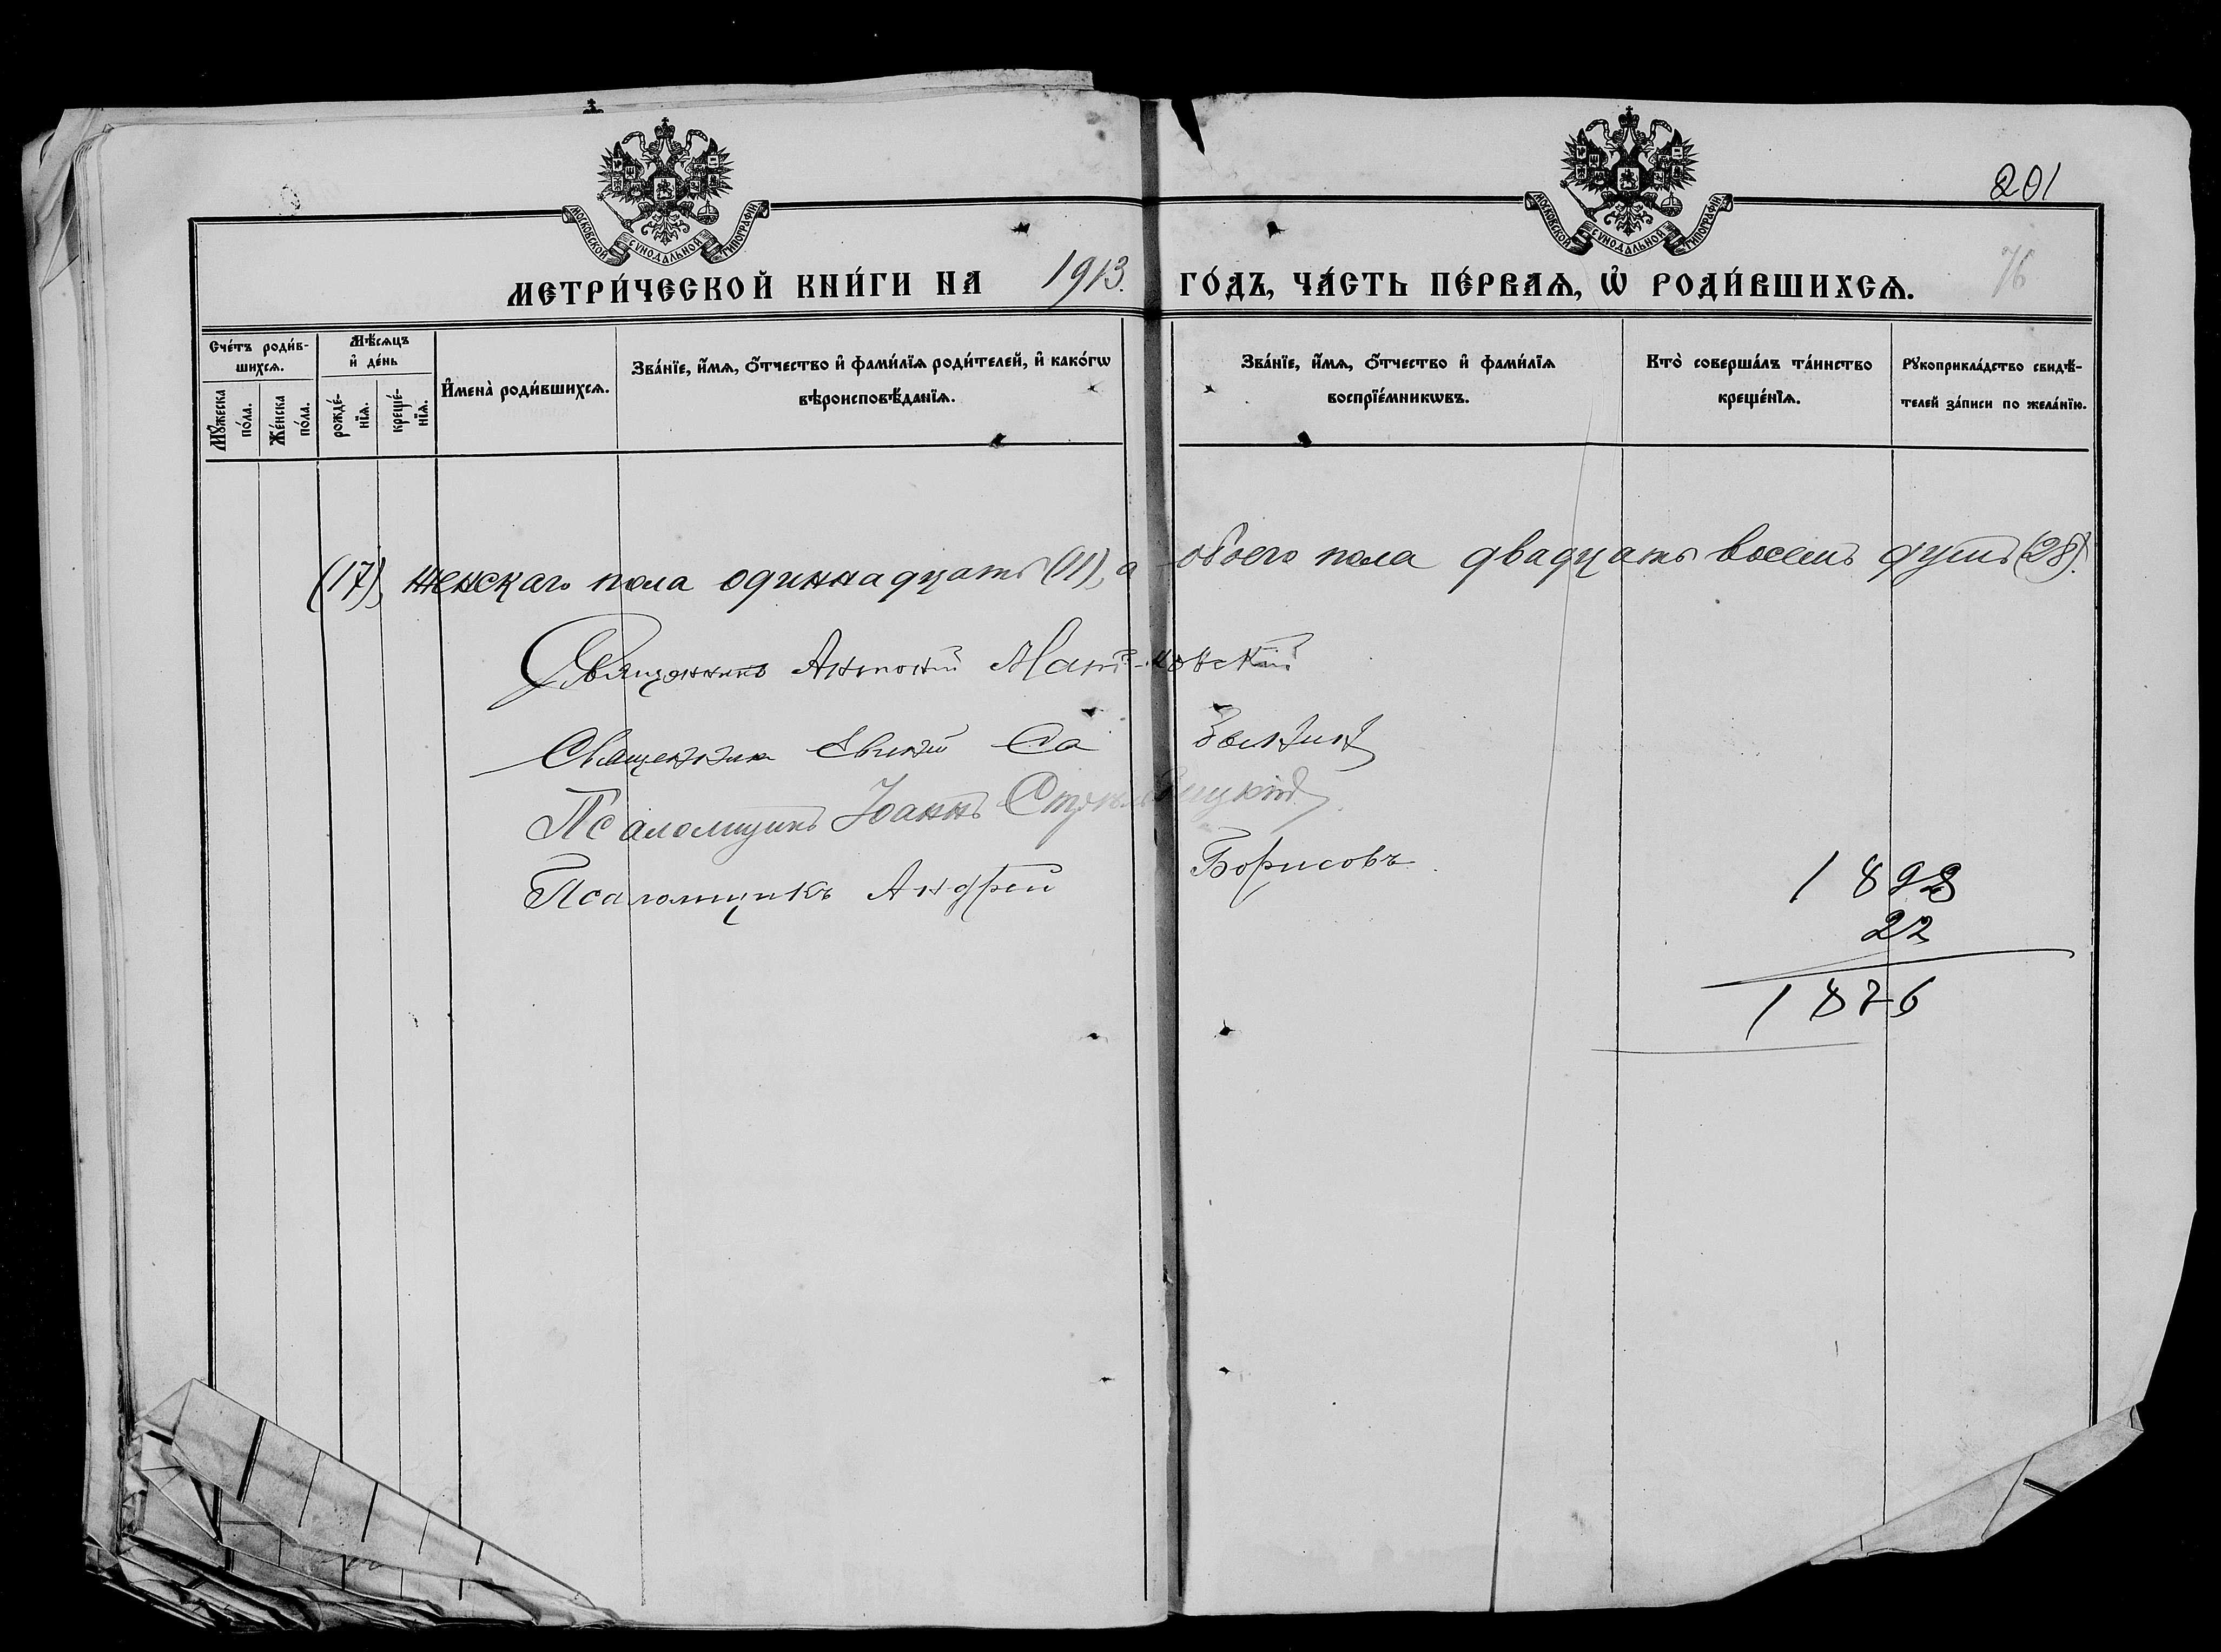 201
МОСКОВСКОЙ СѴНОДАЛЬНОЙ ТИПОГРАФІИ
МОСКОВСКОЙ СѴНОДАЛЬНОЙ ТИПОГРАФІИ
МЕТРИ́ЧЕСКОЙ КНИ́ГИ НА 1913. ГО́ДЪ, ЧА́СТЬ ПЕ́РВАѦ, Ѡ҆ РОДИ́ВШИХСѦ.
76
Сче́тъ роди́в-
шихсѧ.
Мꙋ́жеска по́ла.
Же́нска по́ла.
Мѣ́сѧцъ
и҆ де́нь
рожде́-
нїѧ.
креще́-
нїѧ.
И҆мена̀ роди́вшихсѧ.
Зва́нїе, и҆́мѧ, ѻ҆́тчество и҆ фами́лїѧ роди́телей, и҆ како́гѡ
вѣроисповѣ́данїѧ.
Зва́нїе, и҆́мѧ, ѻ҆́тчество и҆ фами́лїѧ
воспрїе́мникѡвъ.
Кто̀ соверша́лъ та́инство
креще́нїѧ.
Рꙋкоприкла́дство свидѣ́-
телей за́писи по жела́нїю.
(17), женскаго пола одиннадцать (11), а обоего пола двадцать восемь душъ (28).
Священникъ Антоній
Священникъ
Псаломщикъ Іоаннъ
Псаломщикъ Андрей Борисовъ
22
1876